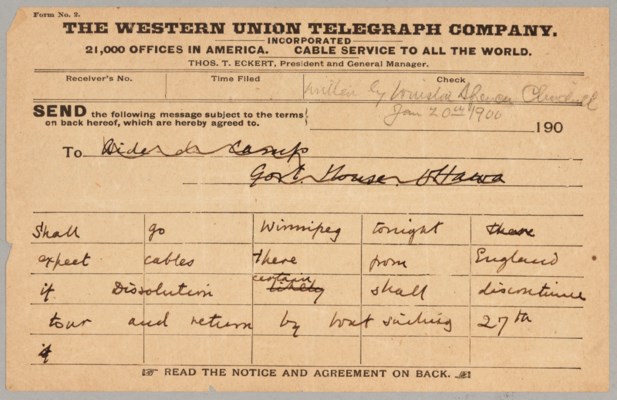 Form No. 2.
THE WESTERN UNION TELEGRAPH COMPANY.
INCORPORATED
21,000 OFFICES IN AMERICA. CABLE SERVICE TO ALL THE WORLD.
THOS. T. ECKERT, President and General Manager.
Receiver's No. Time Filed Check
written by Winston Spencer Churchill
Jan 20th 1900
SEND the following message subject to the terms
on back hereof, which are hereby agreed to.
190
To Aide de Camp
Govt. House Ottawa
Shall go Winnipeg tonight there
expect cables there from England
certain
if Dissolution likely shall discontinue
tour and return by boat sailing 27th
if
READ THE NOTICE AND AGREEMENT ON BACK.